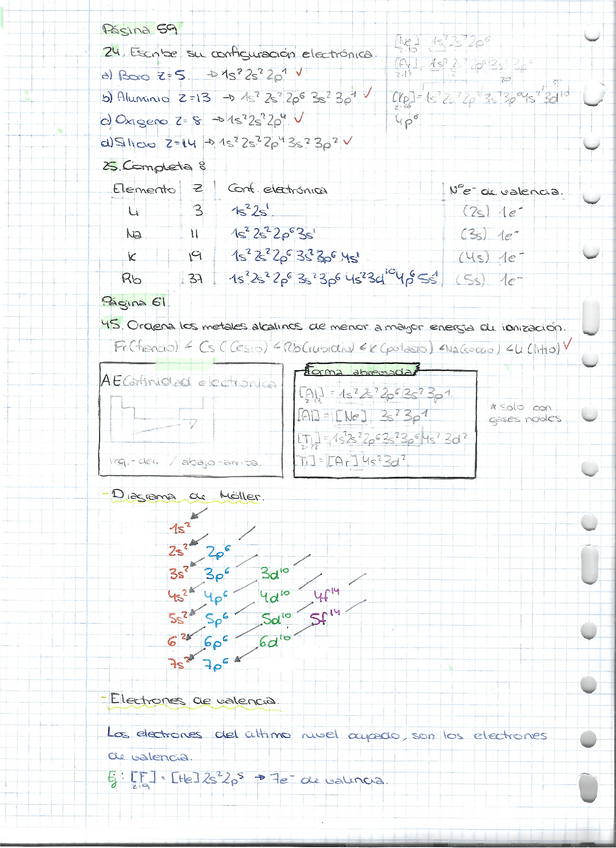 Página 59
24. Escribe su configuración electrónica.
a) Boro z=5 → 1s² 2s² 2p¹ ✓
b) Aluminio z=13 → 1s² 2s² 2p⁶ 3s² 3p¹ ✓
c) Oxígeno z=8 → 1s² 2s² 2p⁴ ✓
d) Silicio z=14 → 1s² 2s² 2p⁴ 3s² 3p² ✓
1s² 2s² 2p⁶
4p⁶
25. Completa 8
Elemento z Conf. electrónica Nº e⁻ de valencia.
Li 3 1s² 2s¹ (2s) 1e⁻
Na 11 1s² 2s² 2p⁶ 3s¹ (3s) 1e⁻
K 19 1s² 2s² 2p⁶ 3s² 3p⁶ 4s¹ (4s) 1e⁻
Rb 37 1s² 2s² 2p⁶ 3s² 3p⁶ 4s² 3d¹⁰ 4p⁶ 5s¹ (5s) 1e⁻
Página 61
45. Ordena los metales alcalinos de menor a mayor energía de ionización.
Fr (francio) < Cs (Cesio) < Rb (rubidio) < K (potasio) < Na (sodio) < Li (litio) ✓
AE (afinidad electrónica
izq.-der. / abajo-arriba.
Forma abreviada
[Al] = 1s² 2s² 2p⁶ 3s² 3p¹
z=13
[Al] = [Ne] 3s² 3p¹
[Ti] = 1s² 2s² 2p⁶ 3s² 3p⁶ 4s² 3d²
Ti] = [Ar] 4s² 3d²
* solo con
gases nobles
- Diagrama de Möller.
1s²
2s² 2p⁶
3s² 3p⁶ 3d¹⁰
4s² 4p⁶ 4d¹⁰ 4f¹⁴
5s² 5p⁶ 5d¹⁰ 5f¹⁴
6² 6p⁶ 6d¹⁰
7s² 7p⁶
- Electrones de valencia.
Los electrones del último nivel ocupado, son los electrones
de valencia.
Ej: [F] = [He] 2s² 2p⁵ → 7e⁻ de valencia.
z=9